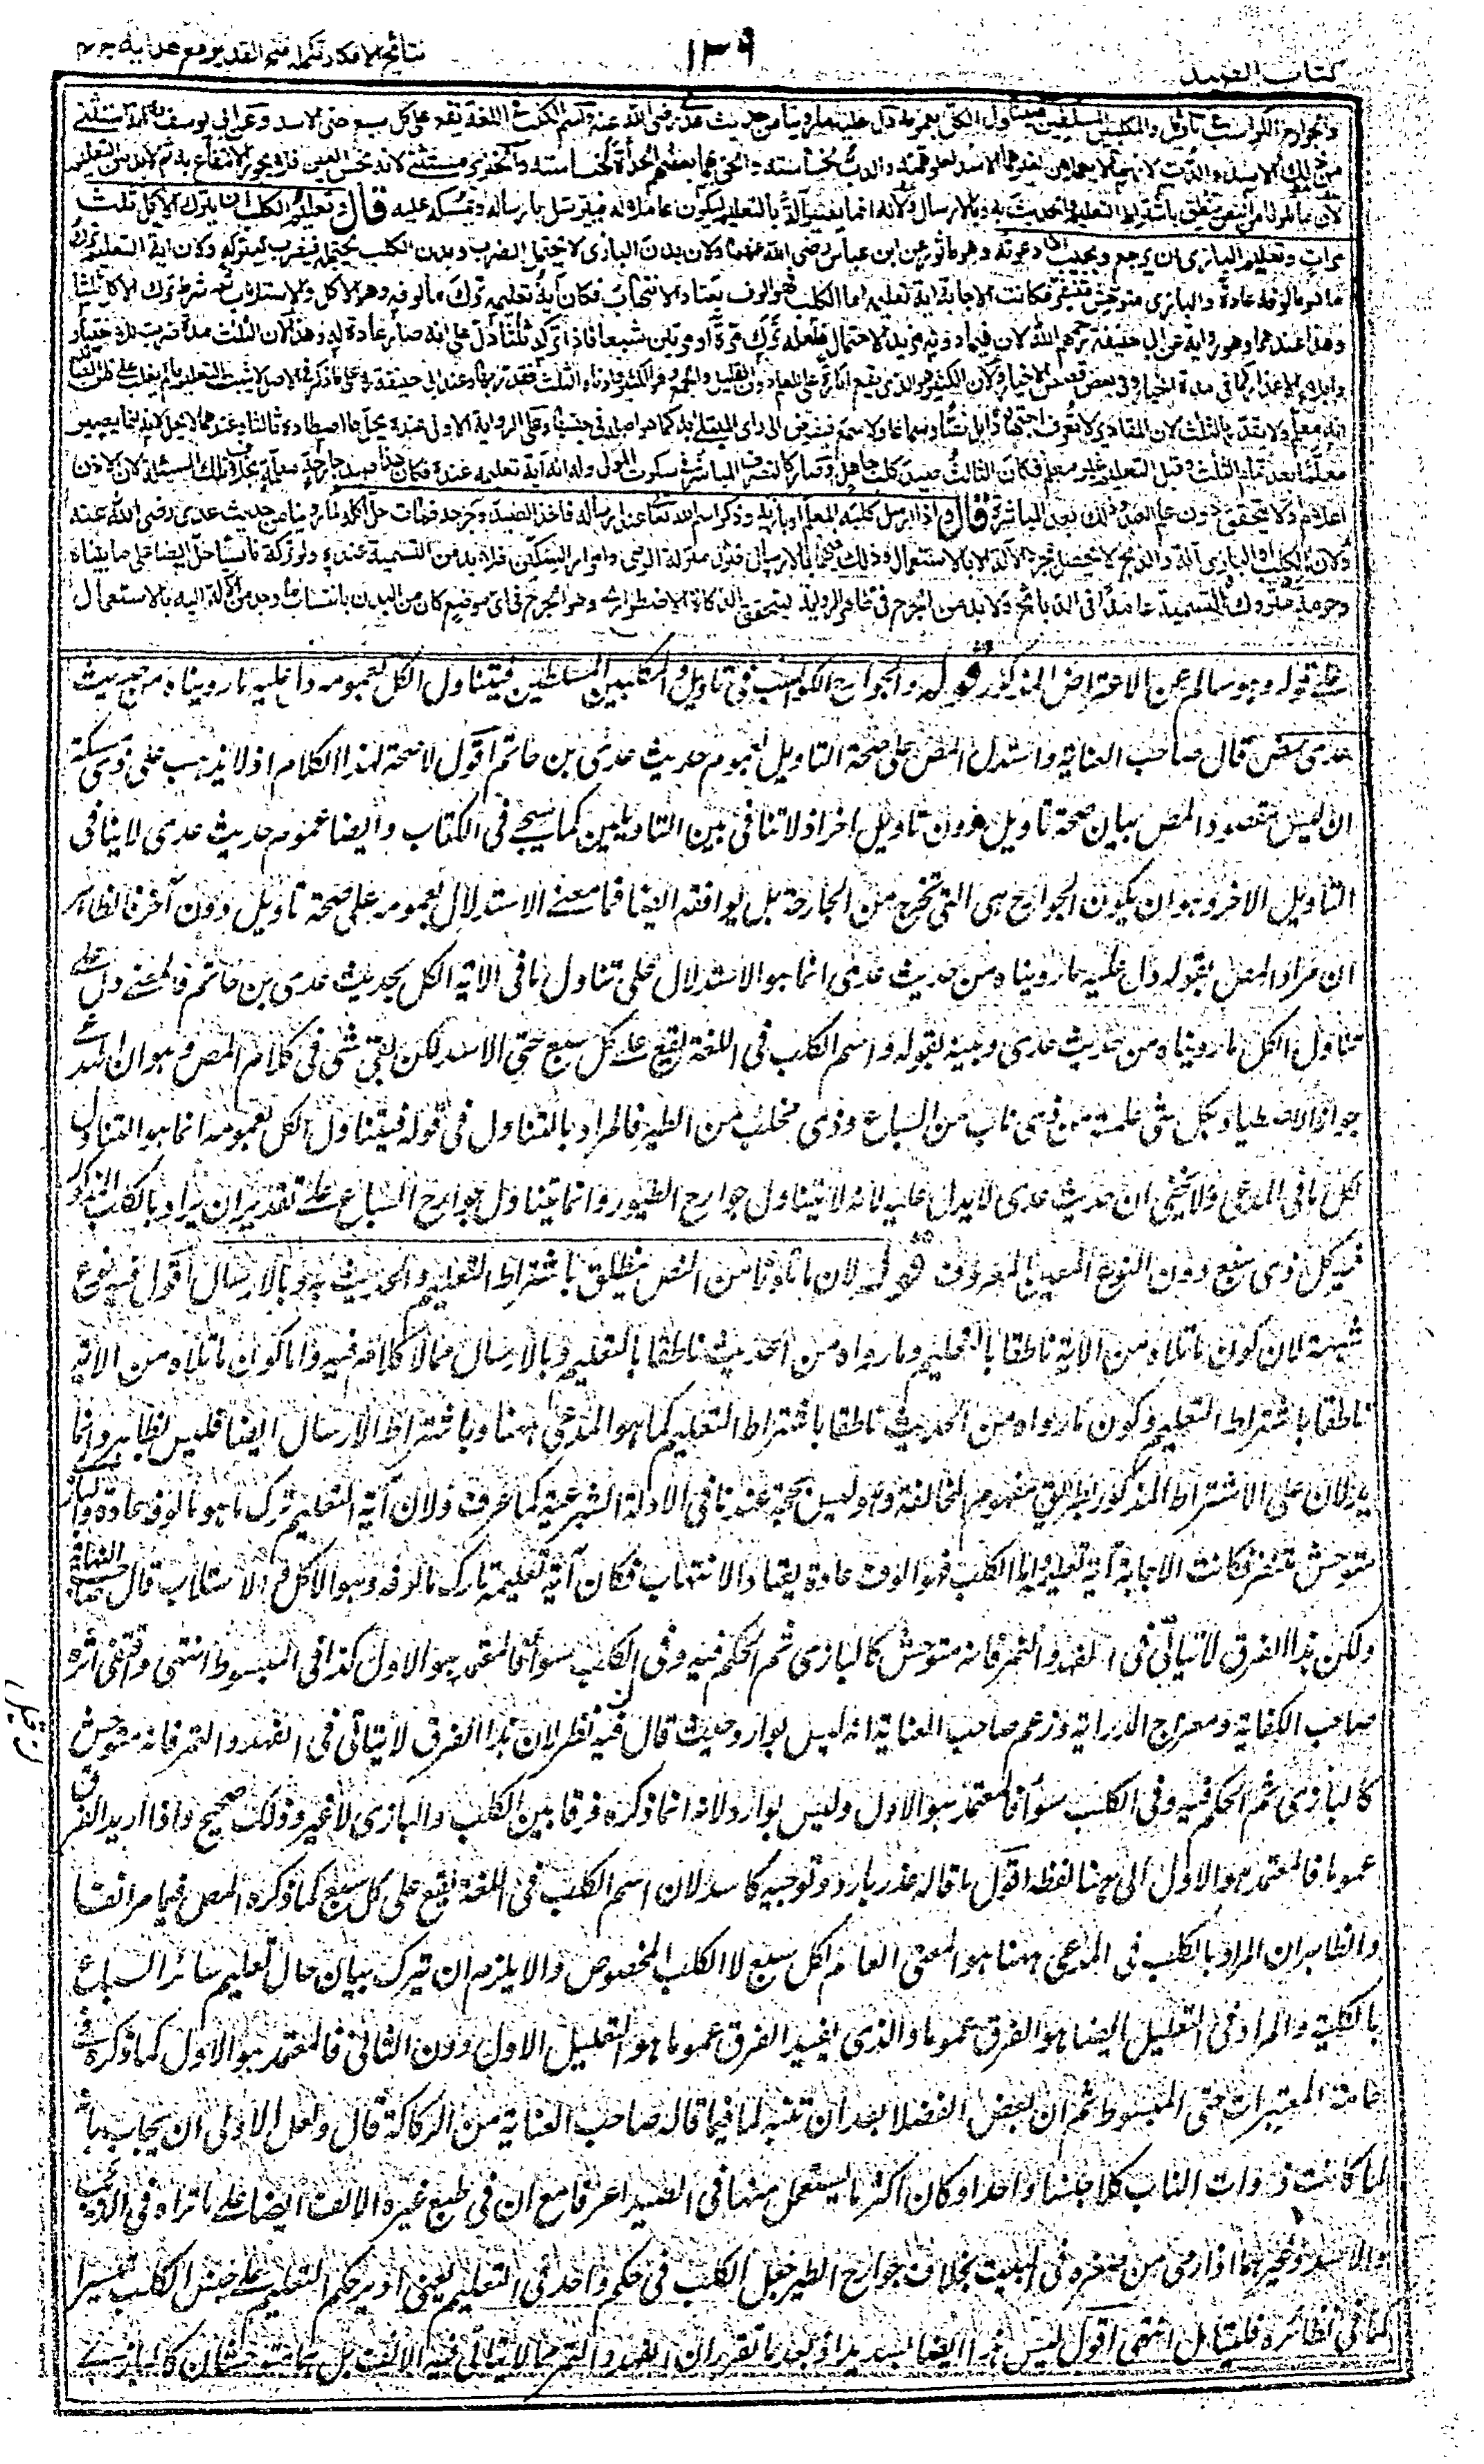 نتائج الافكار تكملہ فتح القدير مع هدايہ ج ٨
١٣٩
كتاب الصيد
والجوارح الكواسب فى تأويل والمكلبين المسلطين فيتناول الكل بعمومه دل عليه ما روينا من حديث عدى رضى الله عنه واسم الكلب فى اللغة يقع على كل سبع حتى الاسد وعن ابى يوسف انه استثنى
من ذلك الاسد والدب لانهما لا يعملان لغيرهما الاسد لعلو همته والدب لخساسته والحق بهما بعضهم الحدأة لخساستها والخنزير مستثنى لانه نجس العين فلا يجوز الانتفاع به ثم لابد من التعليم
لان ما تلونا من النص ينطق باشتراط التعليم والحديث به وبالارسال ولانه انما يصير آلة بالتعليم ليكون عاملا له فيترسل بارساله ويمسكه عليه قال وتعليم الكلب ان يترك الاكل ثلث
مرات وتعليم البازى ان يرجع ويجيب اذا دعوته وهو ماثور عن ابن عباس رضى الله عنهما ولان بدن البازى لا يحتمل الضرب وبدن الكلب يحتمله فيضرب ليتركه ولان آية التعليم ترك
ما هو مالوفه عادة والبازى متوحش متنفر فكانت الاجابة آية تعليمه اما الكلب فهو الوف يعتاد الانتهاب فكان آية تعليمه ترك مالوفه وهو الاكل والاستلاب ثم شرط ترك الاكل ثلثا
وهذا عندهما وهو رواية عن ابى حنيفة رحمهم الله لان فيما دونه مزيد الاحتمال فلعله تركه مرة او مرتين شبعا فاذا تركه ثلثا دل على انه صار عادة له وهذا لان الثلث مدة ضربت للاختبار
وابلاء الاعذار كما فى مدة الخيار وفى بعض قصص الاخيار ولان الكثير هو الذى يقع امارة على العلم دون القليل والجمع هو الكثير وادناه الثلث فقدر بها وعند ابى حنيفة على ما ذكر فى الاصل لا يثبت التعليم ما لم يغلب على ظن الصائد
انه معلم ولا يقدر بالثلث لان المقادير لا تعرف اجتهادا بل نصا وسماعا ولا سمع فيفوض الى راى المبتلى به كما هو اصله فى جنسها وعلى الرواية الاولى عنده يحل ما اصطاده ثالثا وعندهما لا يحل لانه انما يصير
معلما بعد تمام الثلث وقبل التعليم غير معلم فكان الثالث صيد كلب جاهل وصار كالتصرف المباشر فى سكوت المولى وله انه آية تعليمه عنده فكان هذا صيد جارحة معلمة بخلاف تلك المسئلة لان الاذن
اعلام ولا يتحقق دون علم العبد وذلك بعد المباشرة قال واذا ارسل كلبه المعلم او بازيه وذكر اسم الله تعالى عند ارساله فاخذ الصيد وجرحه فمات حل اكله لما روينا من حديث عدى رضى الله عنه
ولان الكلب او البازى آلة والذبح لا يحصل بمجرد الآلة الا بالاستعمال وذلك فيهما بالارسال فنزل منزلة الرمى وامرار السكين فلا بد من التسمية عنده ولو تركه ناسيا حل ايضا على ما بيناه
وحرمة متروك التسمية عامدا فى الذبائح ولابد من الجرح فى ظاهر الرواية ليتحقق الذكاة الاضطرارى وهو الجرح فى اى موضع كان من البدن بانتساب ما وجد من الآلة اليه بالاستعمال
على قوله وهو سالم عن الاعتراض المذكور قوله والجوارح الكواسب فى تاويل والمكلبين المسلطين فيتناول الكل بعمومه دل عليه ما رويناه من حديث
عدى رض قال صاحب العناية واستدل المص على صحة التاويل بعموم حديث عدى بن حاتم اقول لا صحة لهذا الكلام اذ لا يذهب على ذى مسكة
ان ليس مقصود المص بيان صحة تاويل دون تاويل اخر اذ لا تنافى بين التاويلين كما سيجئ فى الكتاب وايضا عموم حديث عدى لا ينافى
التاويل الاخر وهو ان يكون الجوارح هى التى تخرج من الجارحة بل يوافقه ايضا فما معنى الاستدلال بعمومه على صحة تاويل دون آخر فالظاهر
ان مراد المص بقوله دل عليه ما رويناه من حديث عدى انما هو الاستدلال على تناول ما فى الاية الكل بحديث عدى بن حاتم فالمعنى دل على
تناول الكل ما رويناه من حديث عدى وبينه بقوله واسم الكلب فى اللغة يقع على كل سبع حتى الاسد لكن بقى شئ فى كلام المص وهو ان المدعى
جواز الاصطياد بكل شئ علمته من ذى ناب من السباع وذى مخلب من الطير فالمراد بالتناول فى قوله فيتناول الكل بعمومه انما هو التناول
لكل ما فى المدعى ولا يخفى ان حديث عدى لا يدل عليه لانه لا يتناول جوارح الطيور وانما يتناول جوارح السباع على تقدير ان يراد بالكلب المذكور
فيه كل ذى سبع دون النوع المعين المعروف قوله لان ما تلونا من النص ينطق باشتراط التعليم والحديث به وبالارسال اقول فيه نوع
شبهة لان كون ما تلاه من الاية ناطقا بالتعليم وما رواه من الحديث ناطقا بالتعليم وبالارسال مما لا كلام فيه واما كون ما تلاه من الاية
ناطقا باشتراط التعليم وكون ما رواه من الحديث ناطقا باشتراط التعليم كما هو المدعى ههنا وباشتراط الارسال ايضا فليس بظاهر وانما
يدلان على الاشتراط المذكور بطريق مفهوم المخالفة وهو ليس بحجة عندنا فى الادلة الشرعية كما عرف قوله ولان آية التعليم ترك ما هو مالوفه عادة والبازى
متوحش متنفر فكانت الاجابة آية تعليمه اما الكلب فهو الوف عادة يعتاد الانتهاب فكان آية تعليمه ترك مالوفه وهو الاكل والاستلاب قال صاحب النهاية
ولكن هذا الفرق لا يتاتى فى الفهد والنمر فانه متوحش كالبازى ثم الحكم فيه وفى الكلب سواء فالمعتمد هو الاول كذا فى المبسوط انتهى واقتفى اثره
صاحب الكفاية ومعراج الدراية وزعم صاحب العناية انه ليس بوارد حيث قال فيه نظر لان هذا الفرق لا يتاتى فى الفهد والنمر فانه متوحش
كالبازى ثم الحكم فيه وفى الكلب سواء فالمعتمد هو الاول وليس بوارد لانه انما ذكره فرقا بين الكلب والبازى لا غير وذلك صحيح واذا اريد الفرق
عموما فالمعتمد هو الاول الى ههنا لفظه اقول ما قاله عذر بارد وتوجيه كاسد لان اسم الكلب فى اللغة يقع على كل سبع كما ذكره المص فيما مر انفا
والظاهر ان المراد بالكلب فى المدعى ههنا هو المعنى العام لكل سبع لا الكلب المخصوص والا يلزم ان يترك بيان حال تعليم سائر السباع
بالكلية والمراد فى التعليل ايضا هو الفرق عموما والذى يفيد الفرق عموما هو التعليل الاول دون الثانى فالمعتمد هو الاول كما ذكره فى
عامة المعتبرات حتى المبسوط ثم ان بعض الفضلا بعد ان تنبه لما فيما قاله صاحب العناية من الركاكة قال ولعل الاولى ان يجاب بانه
لما كانت ذوات الناب كلا جنسا واحدا وكان اكثر ما يستعمل منها فى الصيد اعرفا مع ان فى طبع غيره الالف ايضا على ما تراه فى الدب
والاسد وغيرهما اذا ربى من صغره فى البيت بخلاف جوارح الطير جعل الكلب فى حكم واحد فى التعليم يعنى ادير حكم التعليم على جنس الكلب تيسيرا
كما فى نظائره فليتامل انتهى اقول ليس هذا ايضا بسديد اذ بعد ما تقرر ان الفهد والنمر مما لا يتاتى فيه الالف بل هما متوحشان كالبازى